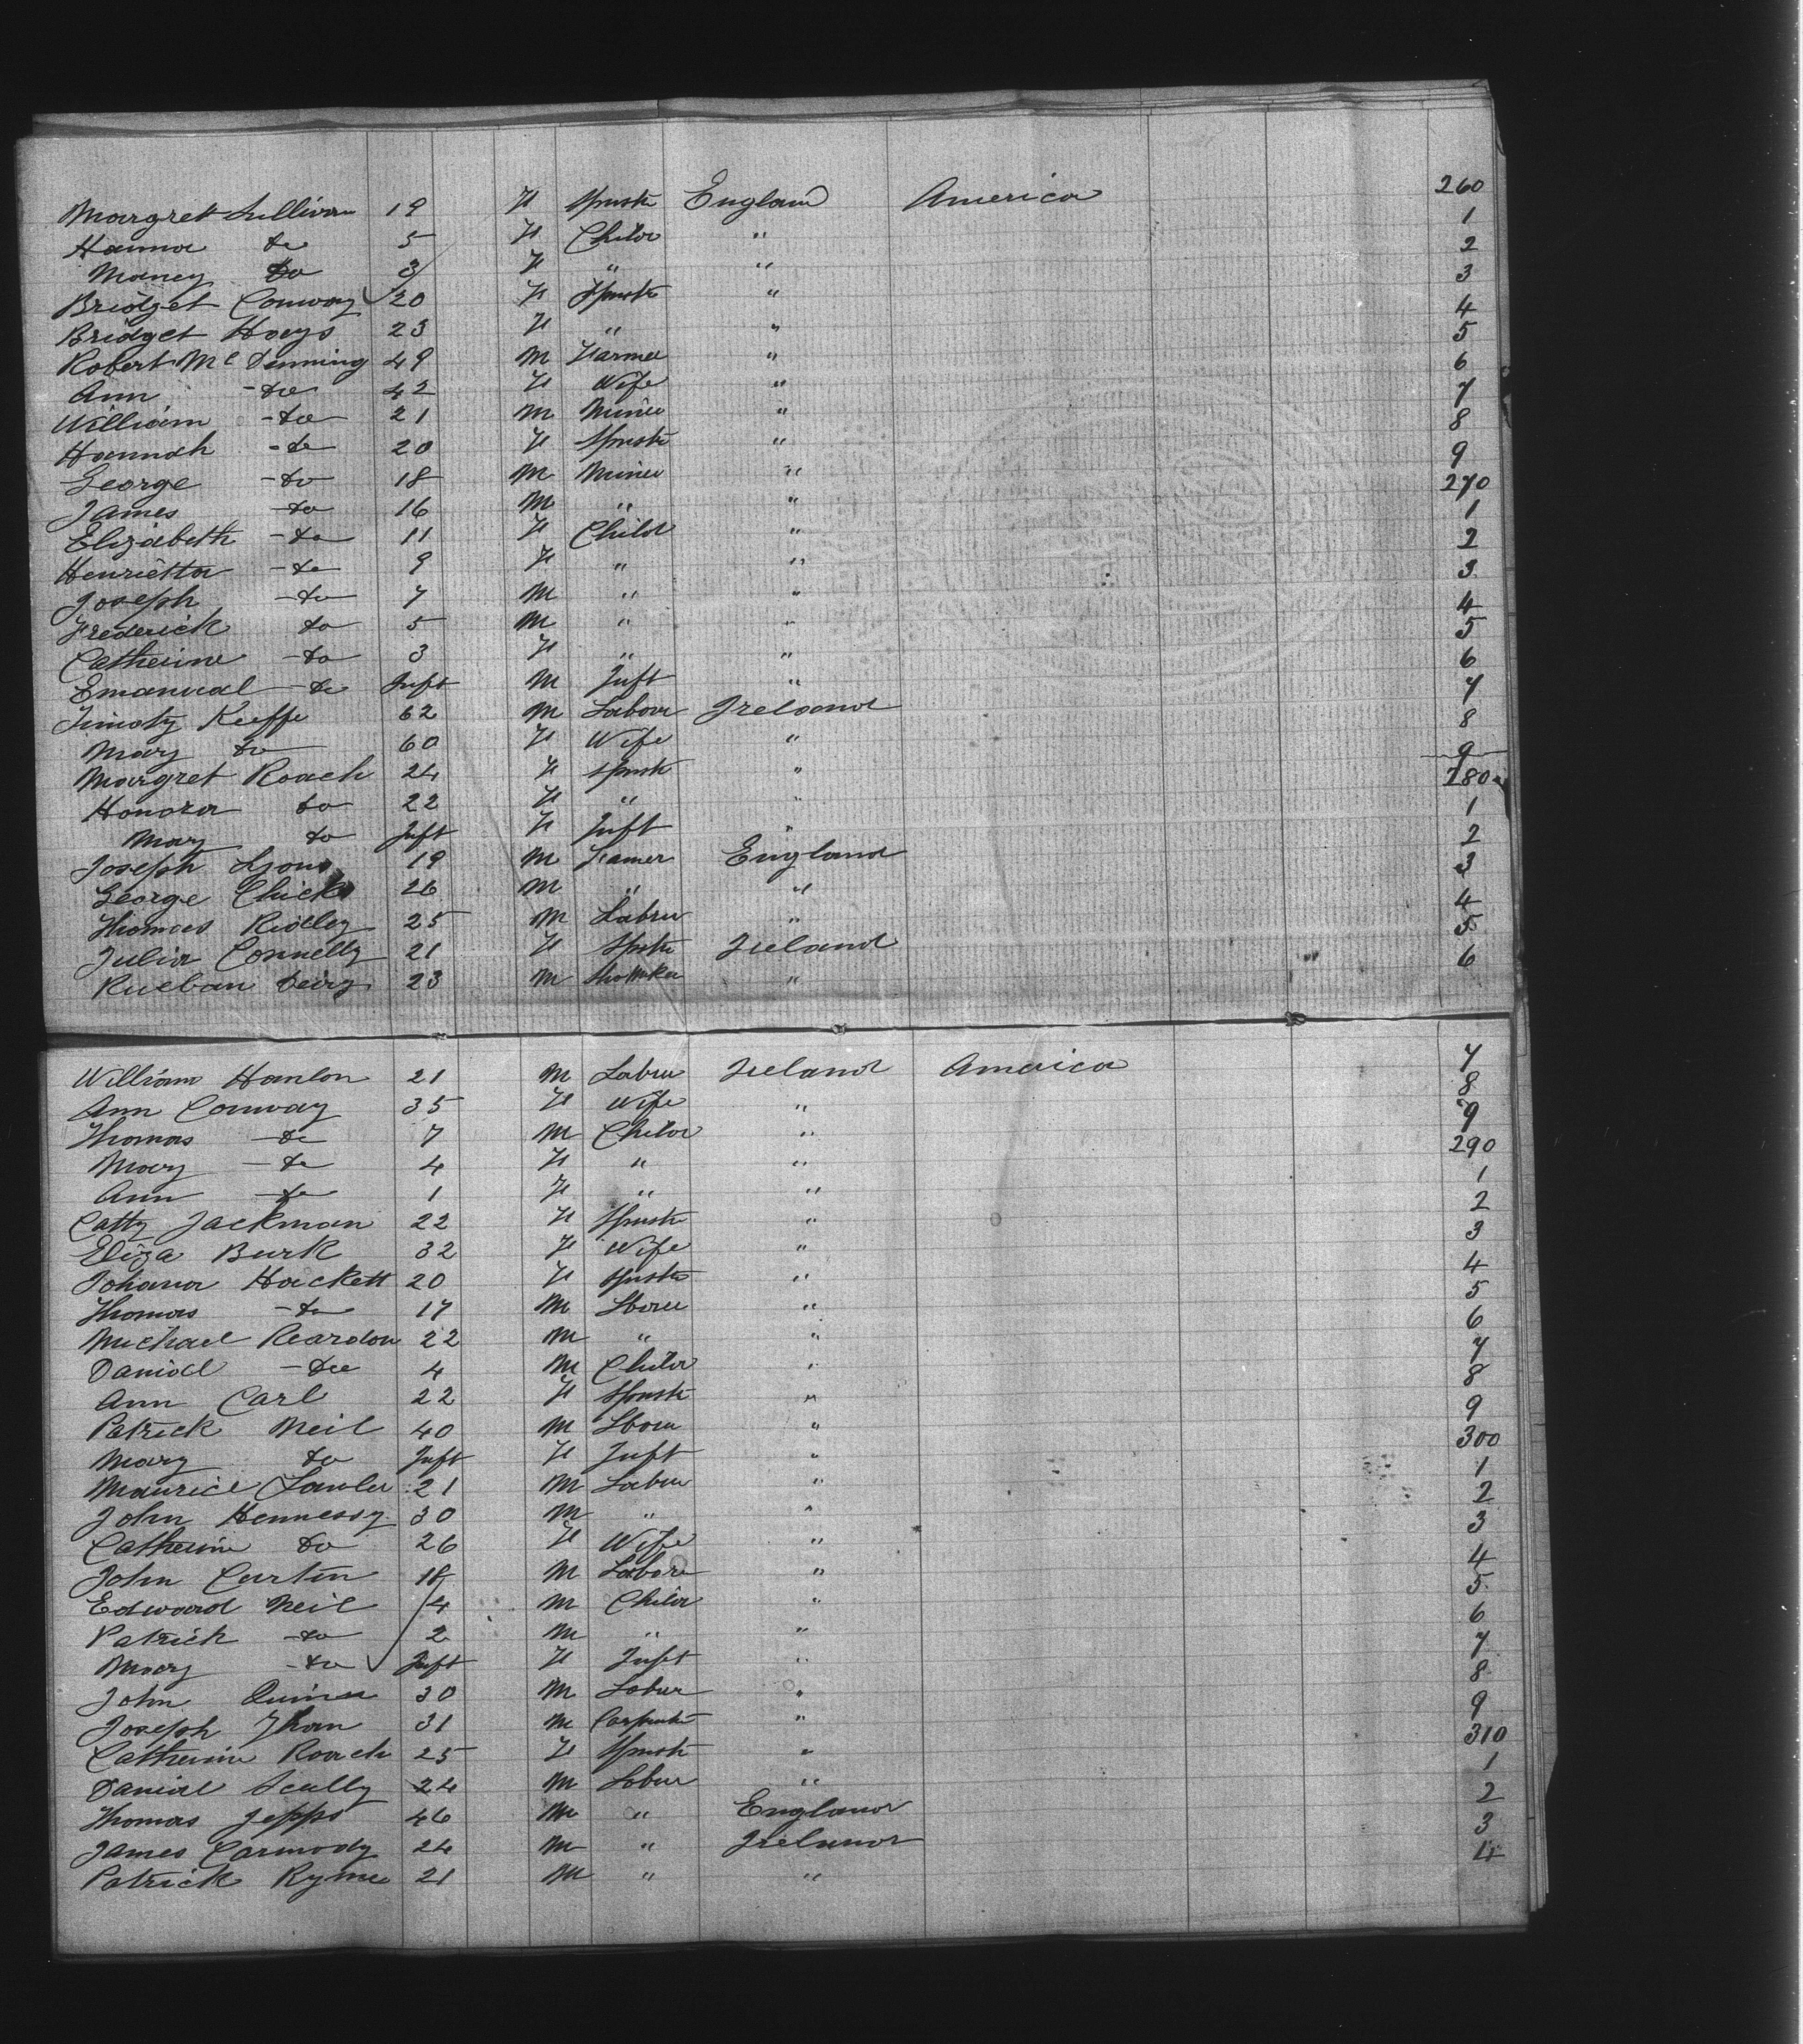 Margret Sullivan 19 F Spinstr England America 260
Hanna do 5 F Child " 1
Maney do 3 F " " 2
Bridget Conway 20 F Spinstr " 3
Bridget Hays 23 F " " 4
Robert Mc Denning 49 M Farmer " 5
Ann - do 42 F Wife " 6
William - do 21 M Miner " 7
Hannah - do 20 F Spinstr " 8
George - do 18 M Miner " 9
James - do 16 M " " 270
Elizabeth - do 11 F Child " 1
Henrietta - do 9 F " " 2
Joseph - do 7 M " " 3
Frederick do 5 M " " 4
Catherine - do 3 F " " 5
Emanual - do Inft M Inft " 6
Timoty Keeffe 62 M Labour Ireland 7
Mary do 60 F Wife " 8
Margret Roach 24 F Spinstr " 9
Honora do 22 F " " 280
Mary do Inft F Inft " 1
Joseph Lyons 19 M Famer England 2
George Chick 26 M " " 3
Thomas Ridley 25 M Labrer " 4
Julia Connelly 21 F Spstr Ireland 5
Rueban 23 M " 6
William Hanlon 21 M Labrer Ireland America 7
Ann Conway 35 F Wife " 8
Thomas - do 7 M Child " 9
Mary - do 4 F " " 290
Ann - do 1 F " " 1
Catty Jackman 22 F Spinstr " 2
Eliza Burk 32 F Wife " 3
Johana Hackett 20 F Spinstr " 4
Thomas - do 17 M Lborer " 5
Michael Reardon 22 M " " 6
Daniel - do 4 M Child " 7
Ann Carl 22 F Spinstr " 8
Patrick Neil 40 M Lborer " 9
Mary do Inft F Inft " 300
Maurice Lawler 21 M Labrer " 1
John Hennessy 30 M " " 2
Catherine do 26 F Wife " 3
John Curtin 18 M Labore " 4
Edward Neil 4 M Child " 5
Patrick - do 2 M " " 6
Mary - do Inft F Inft " 7
John 30 M Labur " 8
Joseph 31 M Carpentr " 9
Catherine Roach 25 F Spinstr " 310
Daniel Scully 24 M Labur " 1
Thomas Jepps 46 M " England 2
James Carmody 24 M " Ireland 3
Patrick 21 M " " 4